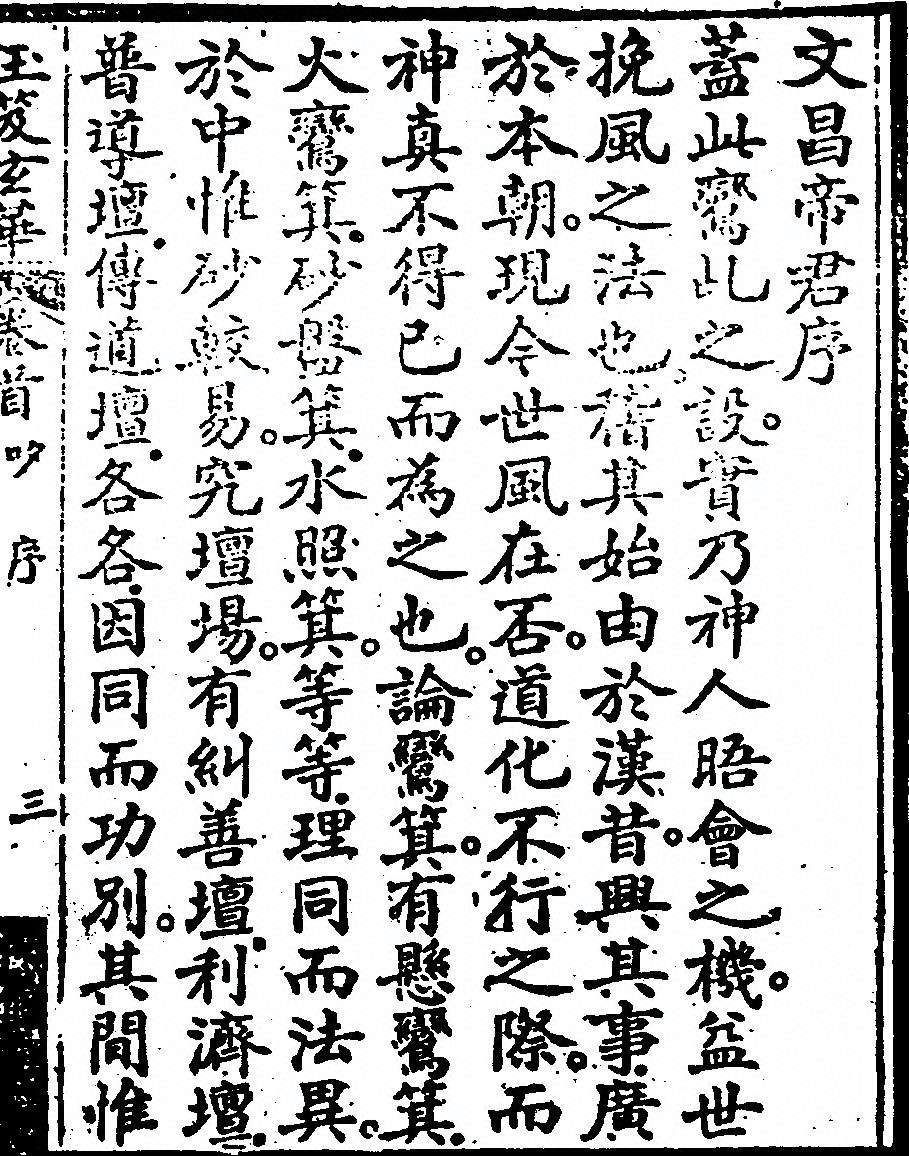 文昌帝君序
蓋此鸞乩之設。實乃神人晤會之機。益世
挽風之法也。稽其始由於漢昔。興其事廣
於本朝。現今世風在否。道化不行之際。而
神真不得已而為之也。論鸞箕。有懸鸞箕.
火鸞箕.砂盤箕.水照箕。等等.理同而法異。
於中惟砂較易。究壇場。有糾善壇.利濟壇.
普導壇.傳道壇.各各.因同而功別。其間惟
玉笈玄華 卷首 吵 序 三